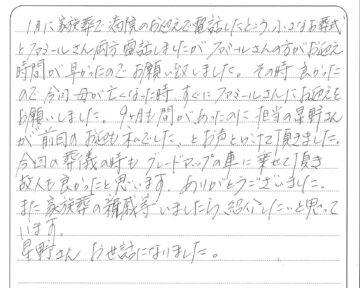 1月に家族葬で病院のお迎えで電話したところ、小さなお葬式
とファミールさん両方電話しましたがファミールさんの方がお迎え
時間が早かったのでお願い致しました。その時良かった
ので今回母が亡くなった時、すぐにファミールさんにお迎えを
お願いしました。9ヶ月も間があったのに担当の早野さん
が前回のお迎も私でした、とお声をかけて頂きました。
今回の葬儀の時もグレードアップの車に乗せて頂き
故人も良かったと思います。ありがとうございました。
また家族葬の親戚等いましたら、紹介したいと思って
います。
早野さん お世話になりました。